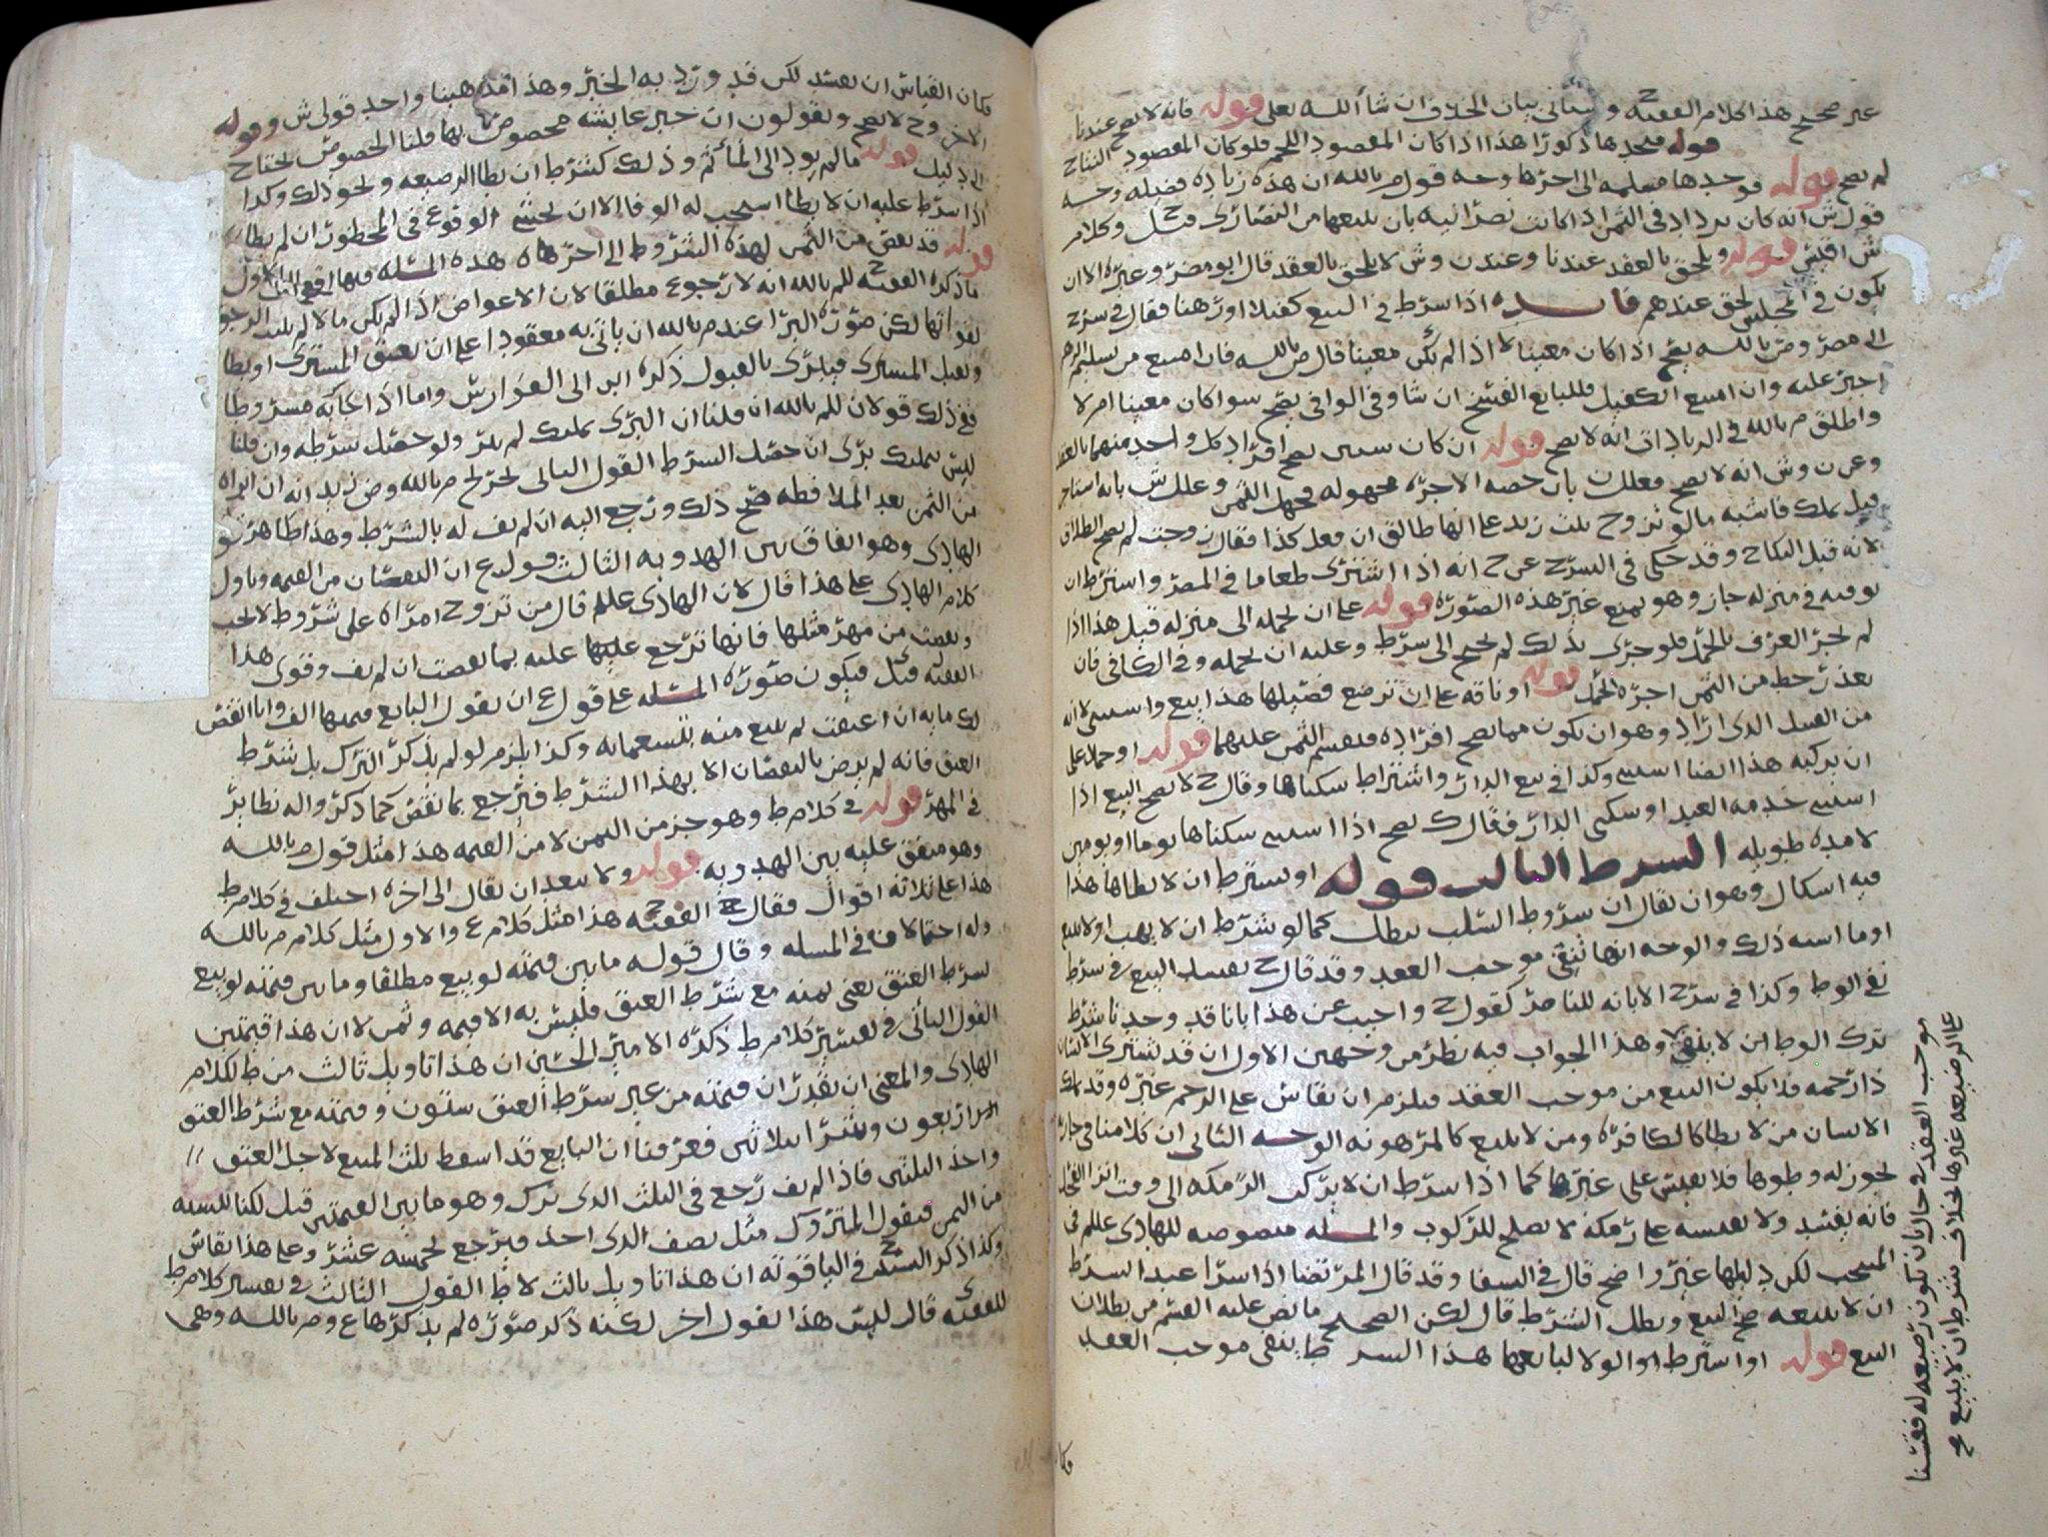 غير صحيح هذا كلام الفقيه ح وسيأتي بيان الخلاف ان شاء الله تعلى قوله فانه لا يصح عندنا
قوله فيجدها ذكورا هذا اذا كان المقصود اللحم فلو كان المقصود النتاج
لم يصح قوله فوجدها مسلمه الى اخرها وجه قول م بالله ان هذه زياده فضيله وجه
قول ش انه كان يزداد في الثمن اذا كانت نصرانيه بان يبيعها من النصارى قيل وكلام
ش اقيس قوله ويلحق بالعقد عندنا وعند ن وش لا يلحق بالعقد قال ابو مضر وغيره الا ان
يكون في المجلس لحق عندهم فايده اذا شرط في البيع كفيلا او رهنا فقال في شرح
ابي مضر وض بالله يصح اذا كان معينا لا اذا لم يكن معينا قال ض بالله فان امتنع من تسليم الرهن
اجبر عليه وان امتنع الكفيل فللبايع الفسخ ان شا وفي الوافي يصح سوا كان معينا ام لا
واطلق م بالله في الزيادات انه لا يصح قوله ان كان سيين يصح افراد كل واحد منهما بالعقد
وعن ن وش انه لا يصح فعلل ن بان حصه الاجره مجهوله فجهل الثمن وعلل ش بانه استاجر
قبل يملك فاشبه ما لو تزوج بنت زيد على انها طالق ان فعل كذا فقال زوجت لم يصح الطلاق
لانه قبل النكاح وقد حكى في الشرح عن ح انه اذا اشترى طعاما في المصر واشترط ان
يوفيه في منزله جاز وهو يمنع غير هذه الصوره قوله على ان يحمله الى منزله قيل هذا اذا
لم يجر العرف بالحمل فلو جرى بذلك لم يحتج الى شرط وعليه ان يحمله وفي الكافي فان
تعذر حط من الثمن اجره الحمل قوله او ناقه على ان ترضع فصيلها هذا بيع واستثنى لانه
من القبيل الذى اراد وهو ان يكون مما يصح افراده فينقسم الثمن عليهما قوله او جملا على
ان يركبه هذا ايضا استثنى وكذا في بيع الدار واشتراط سكناها وقال ح لا يصح البيع اذا
استثنى خدمه العبد او سكنى الدار فقال ك يصح اذا استثنى سكناها يوما او يومين
لا مده طويله الشرط الثالث قوله او يشترط ان لا يطاها هذا
فيه اشكال وهو ان يقال ان شروط السلب يبطل كما لو شرط ان لا يهب او لا يبيع
او ما اشبه ذلك والوجه انها تنفي موجب العقد وقد قال ح يفسد البيع في شرط
نفي الوطي وكذا في شرح الابانه للناصر كقول ح واجيب عن هذا بانا قد وجدنا شرط
ترك الوطى لا ينفي وهذا الجواب فيه نظر من وجهين الاول ان قد يشترى الانسان
ذا رحمه فلا يكون البيع من موجب العقد فيلزم ان يقاس على الرحم غيره وقد يملك
الانسان من لا يطا كالكافره ومن لا يبيع كالمرهونه الوجه الثاني ان كلامنا في جاريه
يجوز له وطوها فلا يقيس على غيرها كما اذا شرط ان لا يركب الرمكه الى وقت
فانه يفسد ولا نقيسه على رمكه لا تصلح للركوب والمسله منصوصه للهادى عللم في
المنتخب لكن دليلها غير واضح قال في الشفا وقد قال المرتضا اذا شرا عبدا بشرط
ان لا يبيعه صح البيع وبطل الشرط قال لكن الصحيح ما نص عليه القسم من بطلان
البيع قوله او اشترط الولا لبايعها هذا الشرط ينفي موجب العقد
فكان
موجب العقد في حال بان تكون رضيعه له فقسنا
على الرضيعه غيرها بخلاف شرط ان لا يبيع صح
فكان القياس ان يفسد لكن قد ورد به الخبر وهذا مذهبنا واحد قولي ش وقوله
الاخر وح لا يصح ويقولون ان خبر عايشه مخصوص بها قلنا الخصوص يحتاج
الى دليل قوله ما لم يود الى المأثم وذلك كشرط ان يطا الرضيعه ونحو ذلك وكذا
اذا شرط عليه ان لا يطا استحب له الوفا الا ان يخشى الوقوع في المحظور ان لم يطا
قوله قد نقص من الثمن لهذه الشروط الى اخرها هذه المسله فيها الاول
ما ذكره الفقيه ح للم بالله انه لا رجوع مطلقا لان الاعواض اذا لم يكن مالا لم يثبت الرجوع
لفواتها لكن صوره البرا عند م بالله ان ياتي به معقودا على ان يعتق المشترى او يطا
ويقبل المشترى فيبرى بالقبول ذكره ابن ابي الفوارس واما اذا جا به مشروطا
ففي ذلك قولان للم بالله ان قلنا ان البرى تمليك لم يبر ولو حصل شرطه وان قلنا
ليس بتمليك برى ان حصل الشرط القول الثاني لحرج م بالله وض زيد انه ان ابراه
من الثمن بعد الملافظه صح ذلك ورجع اليه ان لم يف له بالشرط وهذا ظاهر
الهادى وهو اتفاق بين الهدويه الثالث قول ع ان النقصان من القيمه وتاول
كلام الهادى على هذا قال لان الهادى عللم قال من تزوج امراه على شروط
ونقصت من مهر مثلها فانها ترجع عليه بما نقصت ان لم يف وقوى هذا
الفقيه فيكون صوره المسله على قول ع ان يقول البايع قيمتها الف وانا انقص
لك مايه ان اعتقت ثم يبيع منه بتسعمايه وكذا يلزم لو لم يذكر الترك بل شرط
العتق فانه لم يرض بالنقصان الا بهذا الشرط فيرجع بما نقص كما ذكروا له نظاير
في المهر قوله في كلام ط وهو جز من الثمن لا من القيمه هذا مثل قول م بالله
وهو متفق عليه بين الهدويه قوله ولا يبعد ان يقال الى اخره اختلف في كلام ط
هذا على ثلاثه اقوال فقال الفقيه ح هذا مثل كلام ع والاول مثل كلام م بالله
وله احتمالان في المسله وقال قوله ما بين قيمته لو بيع مطلقا وما بين قيمته لو بيع
بشرط العتق يعني ثمنه مع شرط العتق فليس به الا قيمه وثمن لا ان هذا قيمتين
القول الثاني في تفسير كلام ط ذكره الامير الحسين ان هذا تاويل ثالث من ط لكلام
الهادى والمعنى ان يقدر ان قيمته من غير شرط العتق ستون وقيمته مع شرط العتق
اربعون وشرا بثلاثين فعرفنا ان البايع قد اسقط ثلث المبيع لاجل العتق
واخذ الثلثين فاذا لم يف رجع في الثلث الذى ترك وهو ما بين القيمتين قيل لكنا ننسبه
من الثمن فيقول المتروك مثل نصف الذى اخذ فيرجع بخمسه عشر وعلى هذا يقاس
وكذا ذكر السيد ح في الياقوته ان هذا تاويل ثالث لا ط القول الثالث في تفسير كلام ط
للفقيه قال ليس هذا بقول اخر لكنه ذكر صوره لم يذكرها ع وم بالله وهى